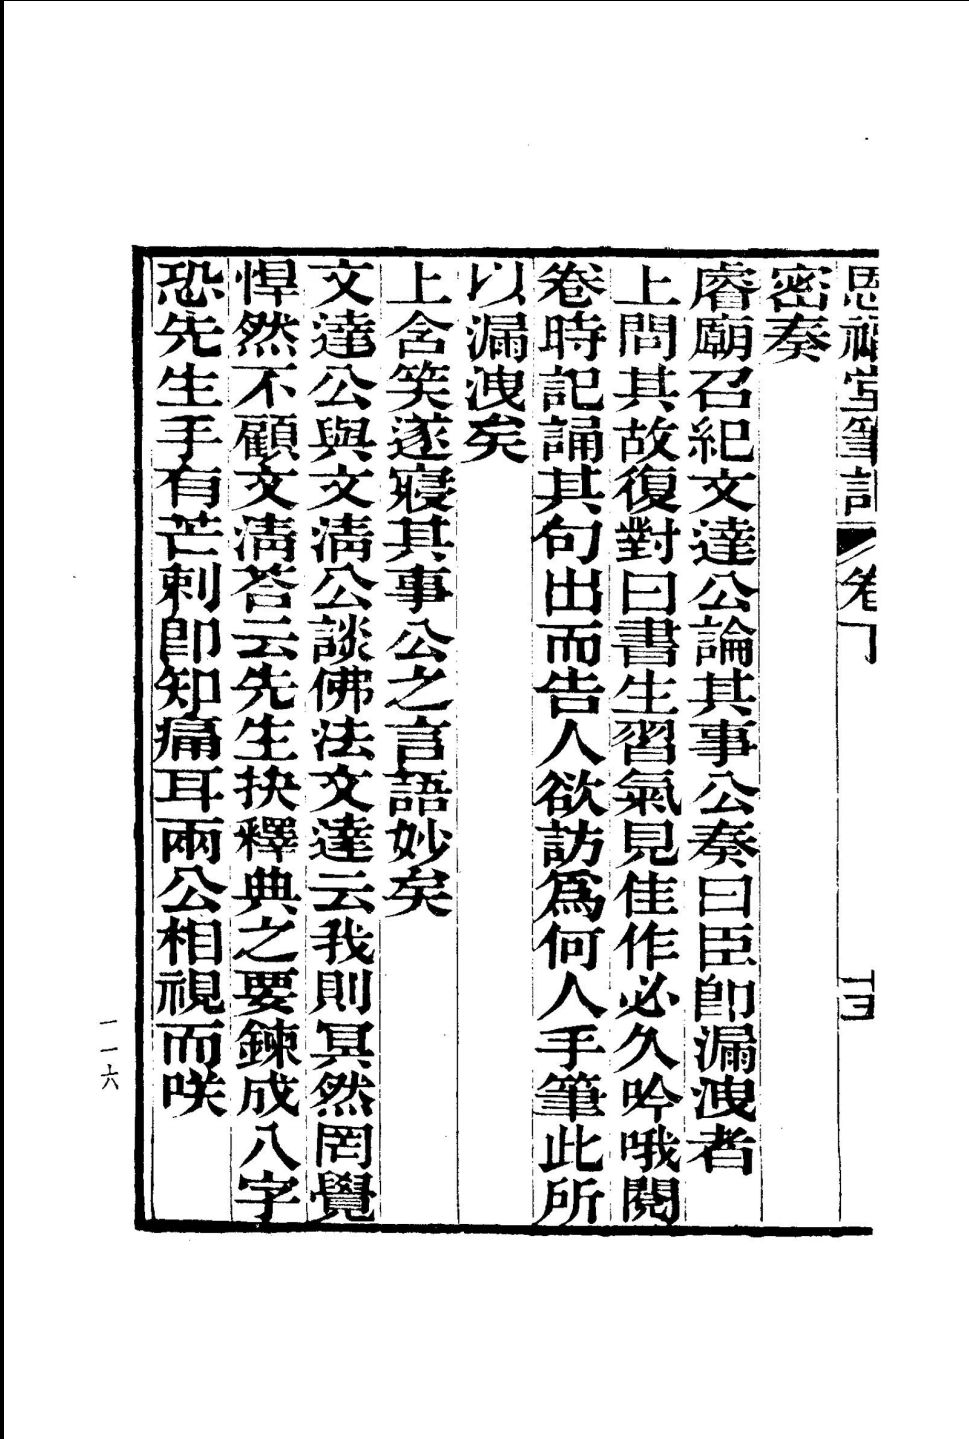 恩福堂筆記 卷下 十三
密奏
睿廟召紀文達公論其事公奏曰臣卽漏洩者
上問其故復對曰書生習氣見佳作必久吟哦閱
卷時記誦其句出而告人欲訪爲何人手筆此所
以漏洩矣
上含笑遂寢其事公之言語妙矣
文達公與文清公談佛法文達云我則冥然罔覺
悍然不顧文清答云先生抉釋典之要鍊成八字
恐先生手有芒刺卽知痛耳兩公相視而咲
一一六